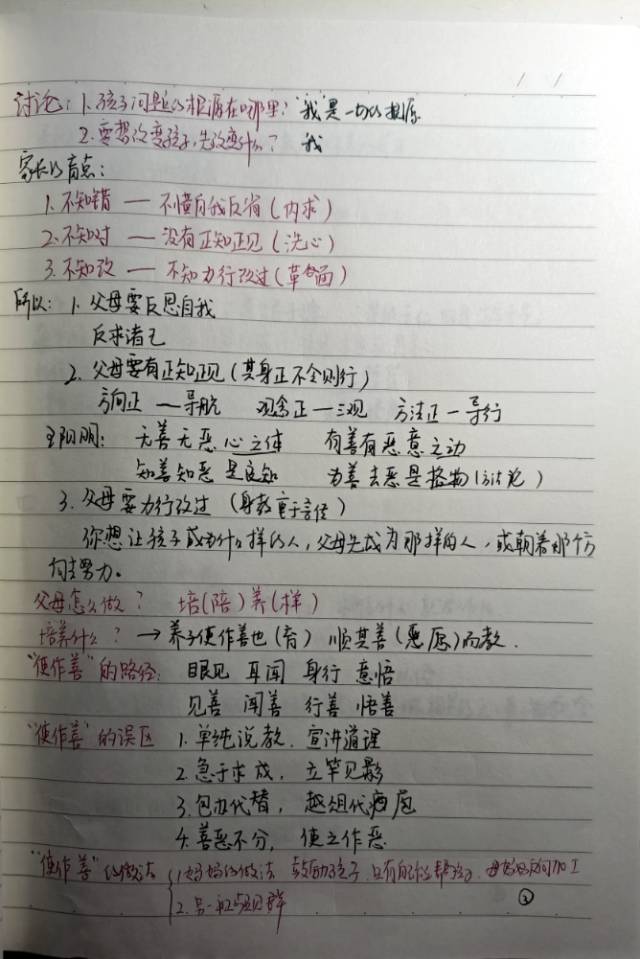 讨论：1. 孩子问题的根源在哪里？"我"是一切的根源
2. 要想改变孩子，先改变什么？ 我
家长的盲点：
1. 不知错 — 不懂自我反省（内求）
2. 不知对 — 没有正知正见（洗心）
3. 不知改 — 不知力行改过（革面）
所以：1. 父母要反思自我
反求诸己
2. 父母要有正知正见（其身正不令则行）
方向正 — 导航 观念正 — 三观 方法正 — 导行
王阳明： 无善无恶心之体 有善有恶意之动
知善知恶是良知 为善去恶是格物（方法论）
3. 父母要力行改过（身教重于言传）
你想让孩子成为什么样的人，父母先成为那样的人，或朝着那个方
向去努力。
父母怎么做？ 培（陪）养（样）
培养什么？ → 养子使作善也（育） 顺其善（愿）而教．
"使作善"的路径： 眼见 耳闻 身行 意悟
见善 闻善 行善 悟善
"使作善"的误区 1. 单纯说教．宣讲道理
2. 急于求成， 立竿见影
3. 包办代替， 越俎代庖
4. 善恶不分， 使之作恶
"使作善"的做法 1. 妈妈的做法 鼓励孩子．只有自己
2. 另一
②